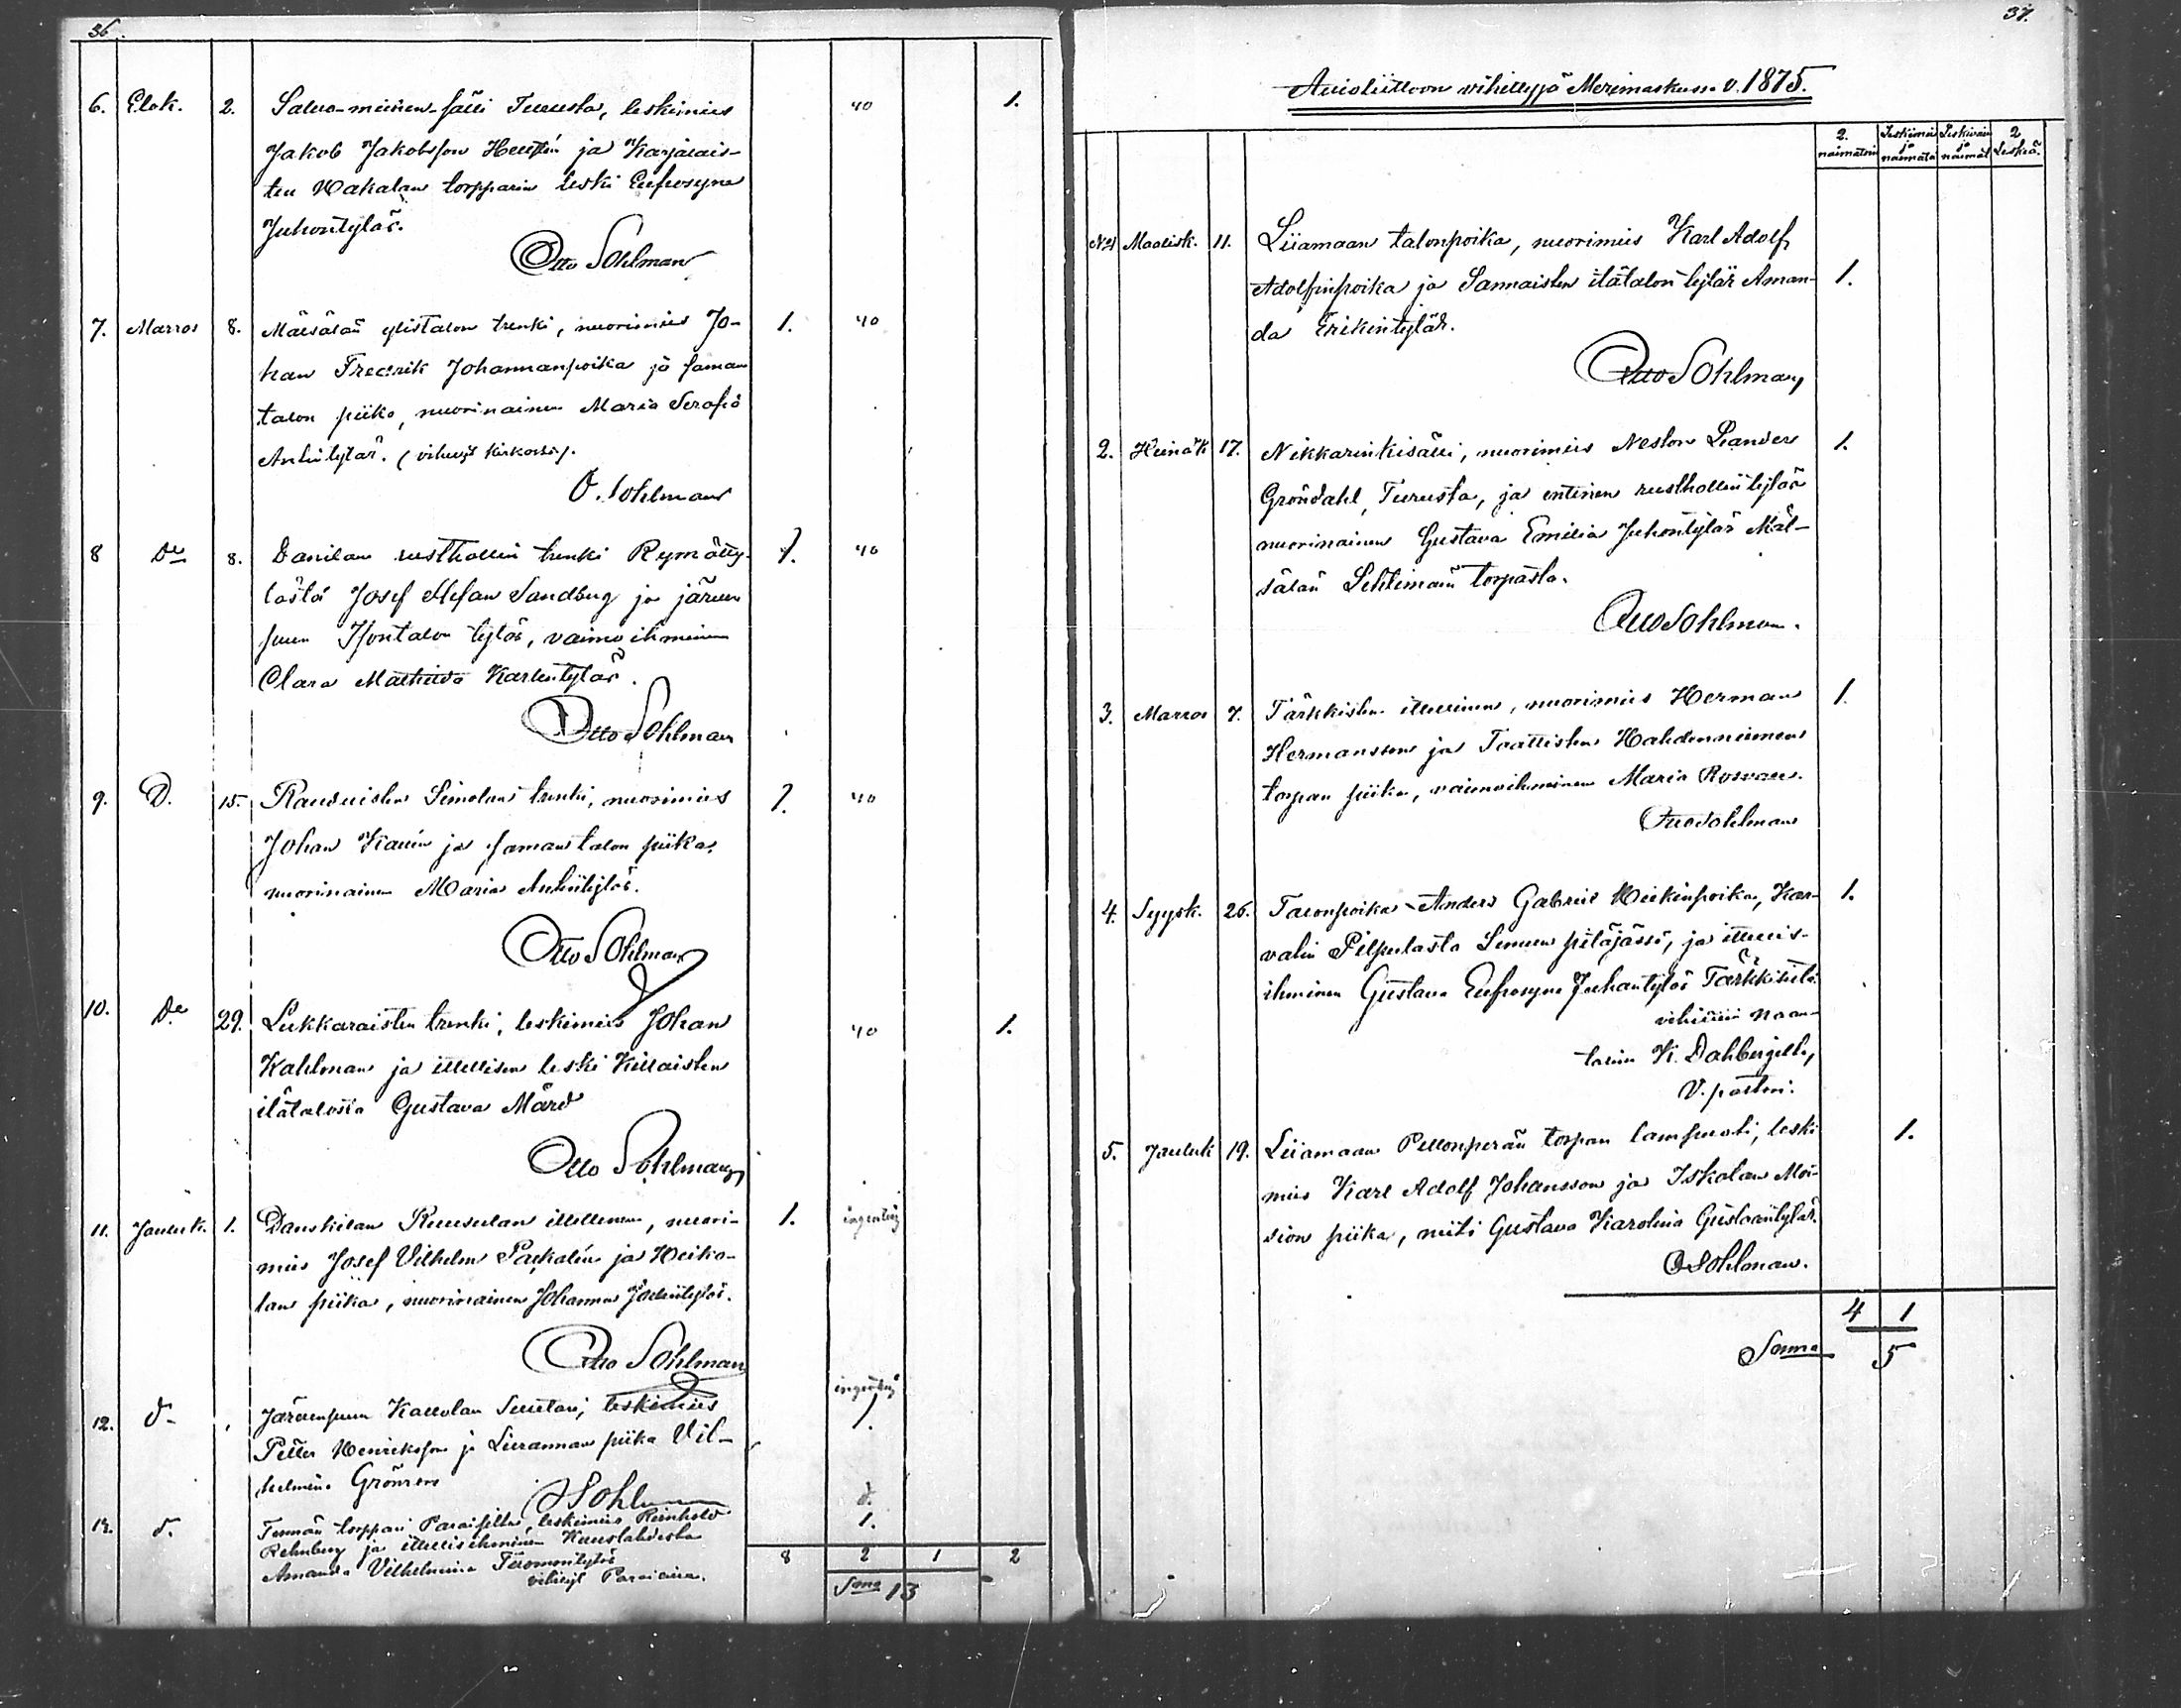 36.
6. Elok. 2. leskimies 40 1.
Jakob Jakobsson ja Karjalais-
ten torpparin leski Eufrosyna
Juhontytär.
Otto Sohlman
7. Marras 8. ylistalon trenki, nuorimies Jo- 1. 40
han Fredrik Johannanpoika ja saman
talon piika, nuorinainen Maria Serafia
Antintytär. (vihityt kirkossa).
O. Sohlman
8 Do 8. Danilan rusthollin trenki Rymätty- 1. 40
löstä Josef Stefan Sandberg ja järven
suun Isontalon tytär, vaimoihminen
Clara Mathilda Karlentytär.
Otto Sohlman
9. D. 15. Simolan trenki, nuorimies 1. 40
Johan ja saman talon piika,
nuorinainen Maria Antintytär.
Otto Sohlman
10. Do 29. Lukkaraisten trenki, leskimies Johan 40 1.
Kahlman ja itellisen leski Killaisten
itätalosta Gustava Mård
Otto Sohlman
11. Jouluk. 1. itellinen, nuori- 1. ingenting
mies Josef Vilhelm ja Heiko-
lan piika, nuorinainen Johanna
Otto Sohlman
12. d- leskimies ingenting 1.
Petter Henriksson ja piika Vil-
helmina Grönroos
Sohlman d.
d. torppari leskimies Reinhold 1.
Rehnberg ja itellisihminen
Amanda Vilhelmina Tuomontytär
vihityt 8 2 1 2
Sma 13
37.
Avioliittoon vihittyjä Merimaskussa v. 1875.
2. naimatoin Leskimies ja naimato Leskivaimo ja naimat 2 Leskeä.
No 1 Maalisk. 11. Liiamaan talonpoika, nuorimies Karl Adolf
Adolfinpoika ja Sannaisten itätalon tytär Aman- 1.
da Erikintytär.
Otto Sohlman
2. Heinäk 17. Nikkarinkisälli, nuorimies Nestor Leander 1.
Gröndahl, Turusta, ja entinen rusthollintytär
nuorinainen Gustava Emilia Juhontytär Mäl-
sälän torpasta.
Otto Sohlman.
3. Marras 7. Tärkkisten itellinen, nuorimies Herman 1.
Hermansson ja Taattisten Hahdenniemen
torpan piika, vaimoihminen Maria
Otto Sohlman
4. Syysk. 26. Talonpoika Anders Gabriel Heikinpoika, Kar- 1.
valin Pilpulasta Lemun pitäjässä, ja itellis-
ihminen Gustava Eufrosyna Juhantytär Tärkkisistä
vihittiin Naan-
talin K. Dahlbergilta,
V. pastori.
5. Jouluk 19. Liiamaan Pellonperän torpan lampuoti, leski 1.
mies Karl Adolf Johansson ja Iskolan Moi-
sion piika, neiti Gustava Karolina Gustaantytär.
O Sohlman.
4 1
Soma 5